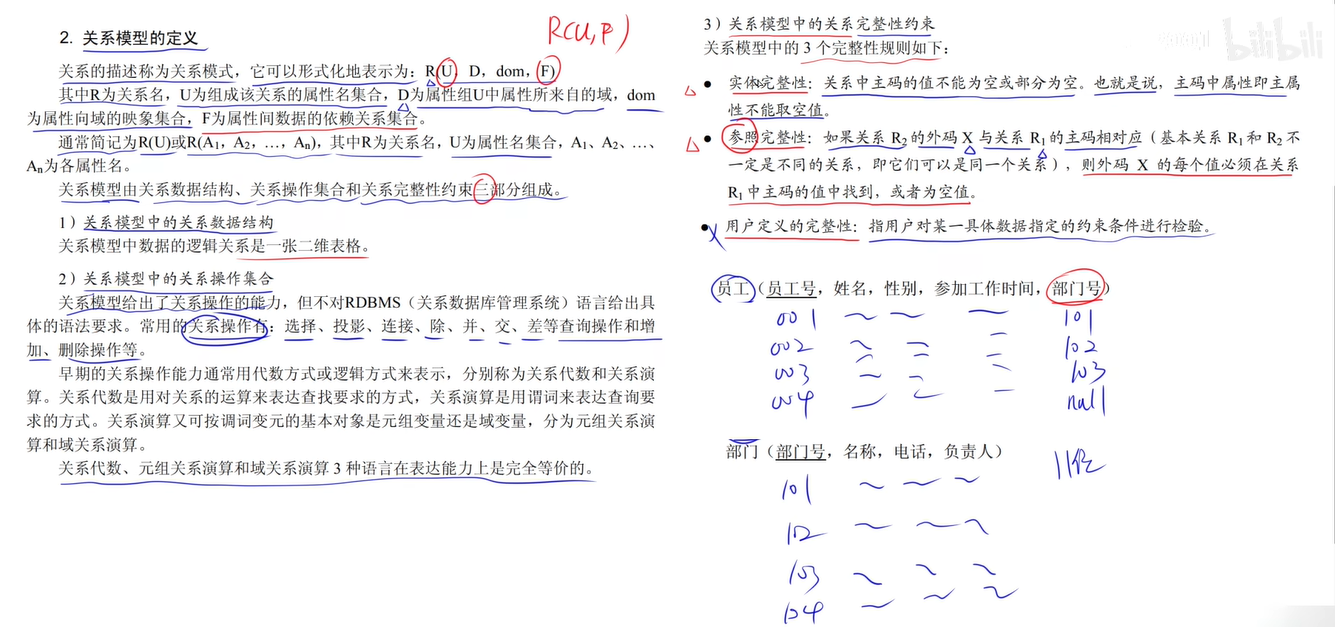 R(U,F)
2. 关系模型的定义
关系的描述称为关系模式，它可以形式化地表示为：R(U，D，dom，F)
其中R为关系名，U为组成该关系的属性名集合，D为属性组U中属性所来自的域，dom
为属性向域的映象集合，F为属性间数据的依赖关系集合。
通常简记为R(U)或R(A1，A2，…，An)，其中R为关系名，U为属性名集合，A1、A2、…、
An为各属性名。
关系模型由关系数据结构、关系操作集合和关系完整性约束三部分组成。
1）关系模型中的关系数据结构
关系模型中数据的逻辑关系是一张二维表格。
2）关系模型中的关系操作集合
关系模型给出了关系操作的能力，但不对RDBMS（关系数据库管理系统）语言给出具
体的语法要求。常用的关系操作有：选择、投影、连接、除、并、交、差等查询操作和增
加、删除操作等。
早期的关系操作能力通常用代数方式或逻辑方式来表示，分别称为关系代数和关系演
算。关系代数是用对关系的运算来表达查找要求的方式，关系演算是用谓词来表达查询要
求的方式。关系演算又可按调词变元的基本对象是元组变量还是域变量，分为元组关系演
算和域关系演算。
关系代数、元组关系演算和域关系演算 3 种语言在表达能力上是完全等价的。
3）关系模型中的关系完整性约束
关系模型中的 3 个完整性规则如下：
bilibili
● 实体完整性：关系中主码的值不能为空或部分为空。也就是说，主码中属性即主属
性不能取空值。
● 参照完整性：如果关系 R2 的外码 X 与关系 R1 的主码相对应（基本关系 R1 和 R2 不
一定是不同的关系，即它们可以是同一个关系），则外码 X 的每个值必须在关系
R1 中主码的值中找到，或者为空值。
● 用户定义的完整性：指用户对某一具体数据指定的约束条件进行检验。
员工（员工号，姓名，性别，参加工作时间，部门号）
001 101
002 102
003 103
004 null
部门（部门号，名称，电话，负责人）
101
102
103
104